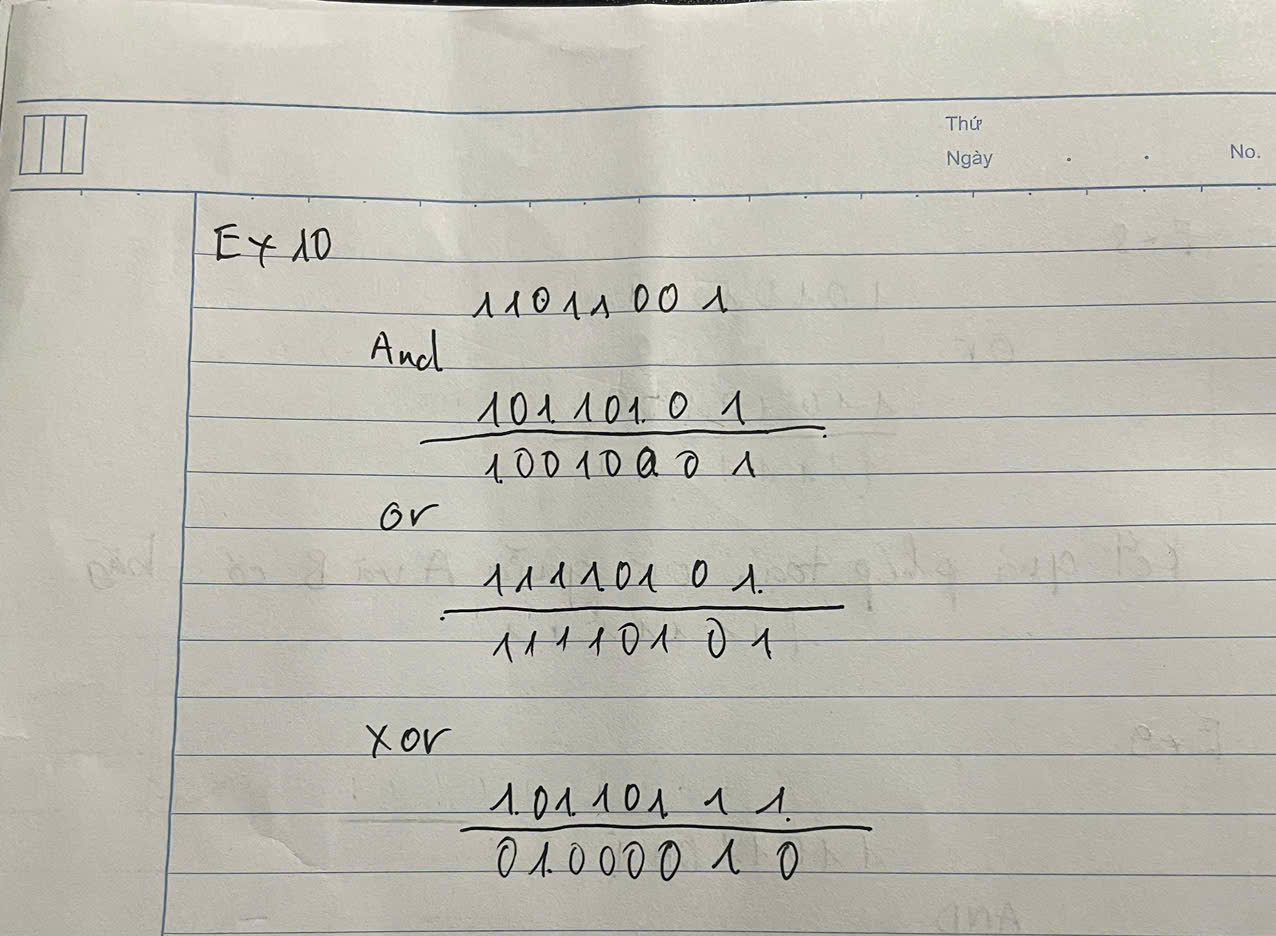 Thứ
Ngày . . No.
Ex 10
11011001
And
10110101
10010001
or
11110101
11110101
xor
10110111
01000010